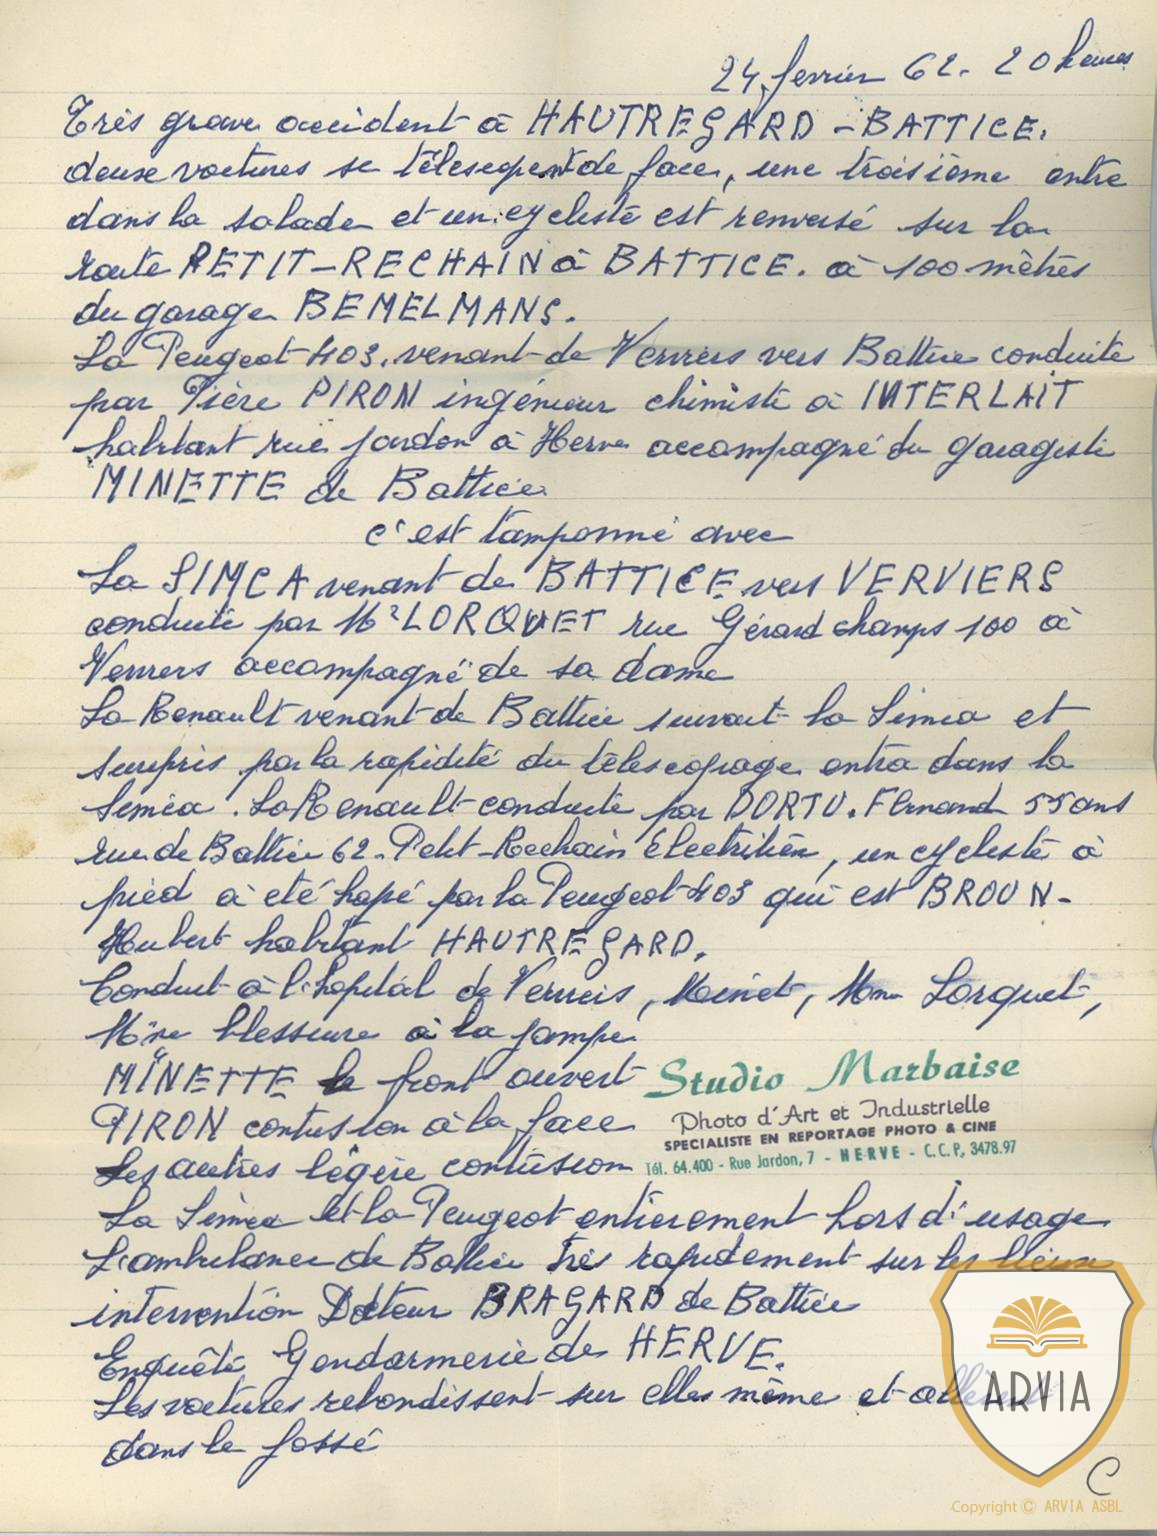 24 fevrier 62. 20 heures
Très grave accident à HAUTREGARD - BATTICE.
deuse voitures se télescopent de face, une troisième entre
dans la salade et un cycliste est renversé sur la
route PETIT-RECHAIN à BATTICE. à 100 mètres
du garage BEMELMANS.
La Peugeot 403. venant de Verviers vers Battice conduite
par Pière PIRON ingénieur chimiste à INTERLAIT
habitant rue Jardon à Herve accompagné du garagiste
MINETTE de Battice
c'est tamponné avec
La SIMCA venant de BATTICE vers VERVIERS
conduite par Mr LORQUET rue Gérard champs 100 à
Verviers accompagné de sa dame
La Renault venant de Battice suivait la Simca et
surpris par la rapidité du télescopage entra dans la
Simca. La Renault conduite par DORTU. Fernand 55 ans
rue de Battice 62. Petit-Rechain électritien, un cycliste à
pied à été hapé par la Peugeot 403 qui est BROUN-
Hubert habitant HAUTREGARD.
Conduit à l'hopital de Verviers, Minet, Mme Lorquet,
Mme blessure à la jampe
MINETTE le front ouvert
PIRON contusion à la face
Les autres légère contusion
Studio Marbaise
Photo d'Art et Industrielle
SPECIALISTE EN REPORTAGE PHOTO & CINE
Tél. 64.400 - Rue Jardon, 7 - HERVE - C.C.P. 3478.97
La Simca et la Peugeot entierement hors d'usage
L'ambulance de Battice très rapidement sur les lieux
intervention Docteur BRAGARD de Battice
Enquête Gendarmerie de HERVE.
Les voitures rebondissent sur elles même et
dans le fossé
ARVIA
Copyright © ARVIA ASBL